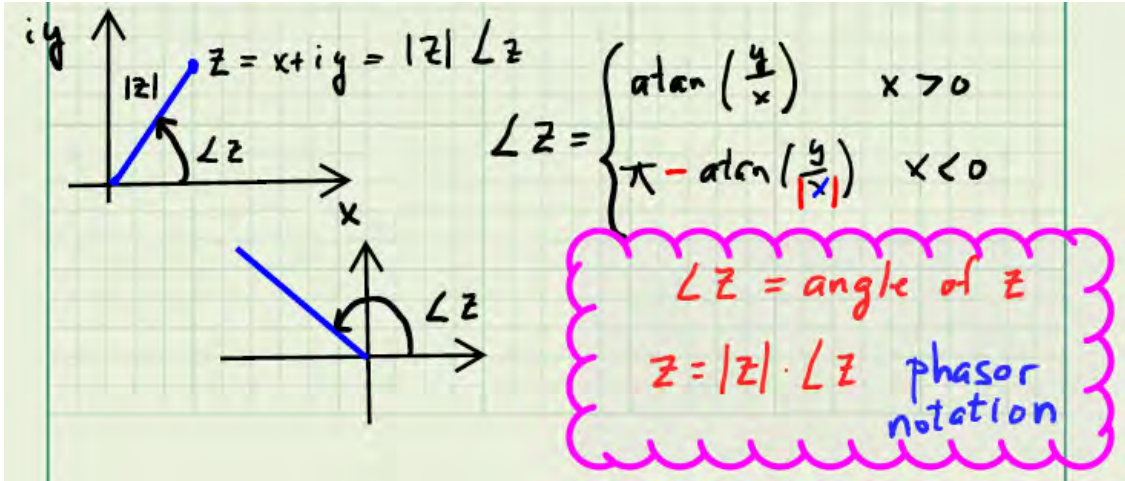 iy
z = x + i y = |z| ∠z
|z|
∠z
x
∠z = { atan (y/x) x > 0
π - atan (y/|x|) x < 0
∠z
∠z = angle of z
z = |z| · ∠z phasor
notation